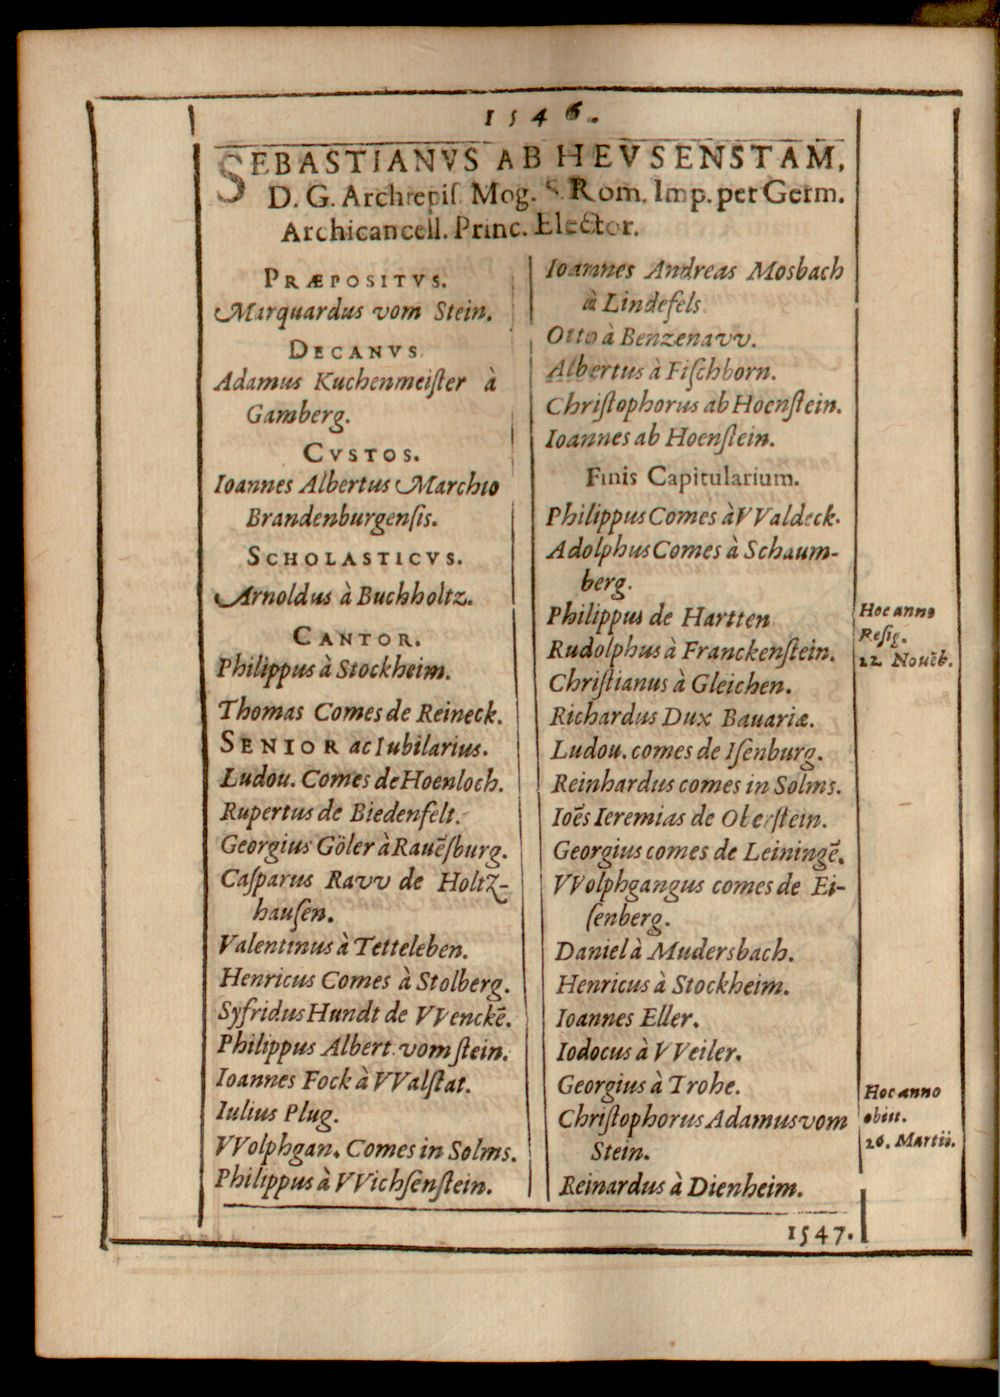 1546.
SEBASTIANVS AB HEVSENSTAM,
D. G. Archiepiſ. Mog. S. Rom. Imp. per Germ.
Archicancell. Princ. Elector.
PRÆPOSITVS.
Marquardus vom Stein.
DECANVS.
Adamus Kuchenmeiſter à
Gamberg.
CVSTOS.
Ioannes Albertus Marchio
Brandenburgenſis.
SCHOLASTICVS.
Arnoldus à Buchholtz.
CANTOR.
Philippus à Stockheim.
Thomas Comes de Reineck.
SENIOR ac Iubilarius.
Ludou. Comes de Hoenloch.
Rupertus de Biedenfelt.
Georgius Göler à Rauēſburg.
Caſparus Ravv de Holtz-
hauſen.
Valentinus à Tetteleben.
Henricus Comes à Stolberg.
Syfridus Hundt de VVenckē.
Philippus Albert. vom ſtein.
Ioannes Fock à VValſtat.
Iulius Plug.
VVolphgan. Comes in Solms.
Philippus à VVichſenſtein.
Ioannes Andreas Mosbach
à Lindefels
Otto à Benzenavv.
Albertus à Fiſchborn.
Chriſtophorus ab Hoenſtein.
Ioannes ab Hoenſtein.
Finis Capitularium.
Philippus Comes à VValdeck.
Adolphus Comes à Schaum-
berg.
Philippus de Hartten
Rudolphus à Franckenſtein.
Chriſtianus à Gleichen.
Richardus Dux Bauariæ.
Ludou. comes de Iſenburg.
Reinhardus comes in Solms.
Ioēs Ieremias de Oberſtein.
Georgius comes de Leiningē.
VVolphgangus comes de Ei-
ſenberg.
Daniel à Mudersbach.
Henricus à Stockheim.
Ioannes Eller.
Iodocus à VVeiler.
Georgius à Trohe.
Chriſtophorus Adamus vom
Stein.
Reinardus à Dienheim.
Hoc anno
Reſig.
22. Nouēb.
Hoc anno
obiit.
26. Martii.
1547.